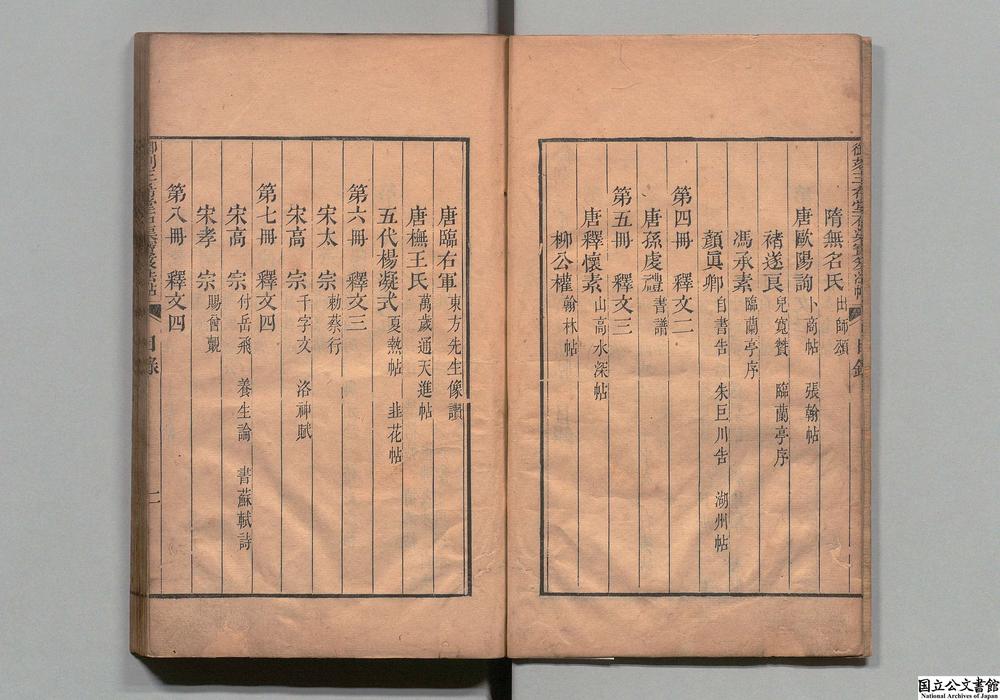 隋無名氏 出師頌
唐歐陽詢 卜商帖 張翰帖
褚遂良 兒寬贊 臨蘭亭序
馮承素 臨蘭亭序
顏眞卿 自書告 朱巨川告 湖州帖
第四冊 釋文二
唐孫虔禮 書譜
第五冊 釋文三
唐釋懷素 山高水深帖
柳公權 翰林帖
唐臨右軍 東方先生像讚
唐橅王氏 萬歲通天進帖
五代楊凝式 夏熱帖 韭花帖
第六冊 釋文三
宋太宗 勅蔡行
宋高宗 千字文 洛神賦
第七冊 釋文四
宋高宗 付岳飛 養生論 書蘇軾詩
宋孝宗 賜曾覿
第八冊 釋文四
目錄
二
国立公文書館
National Archives of Japan